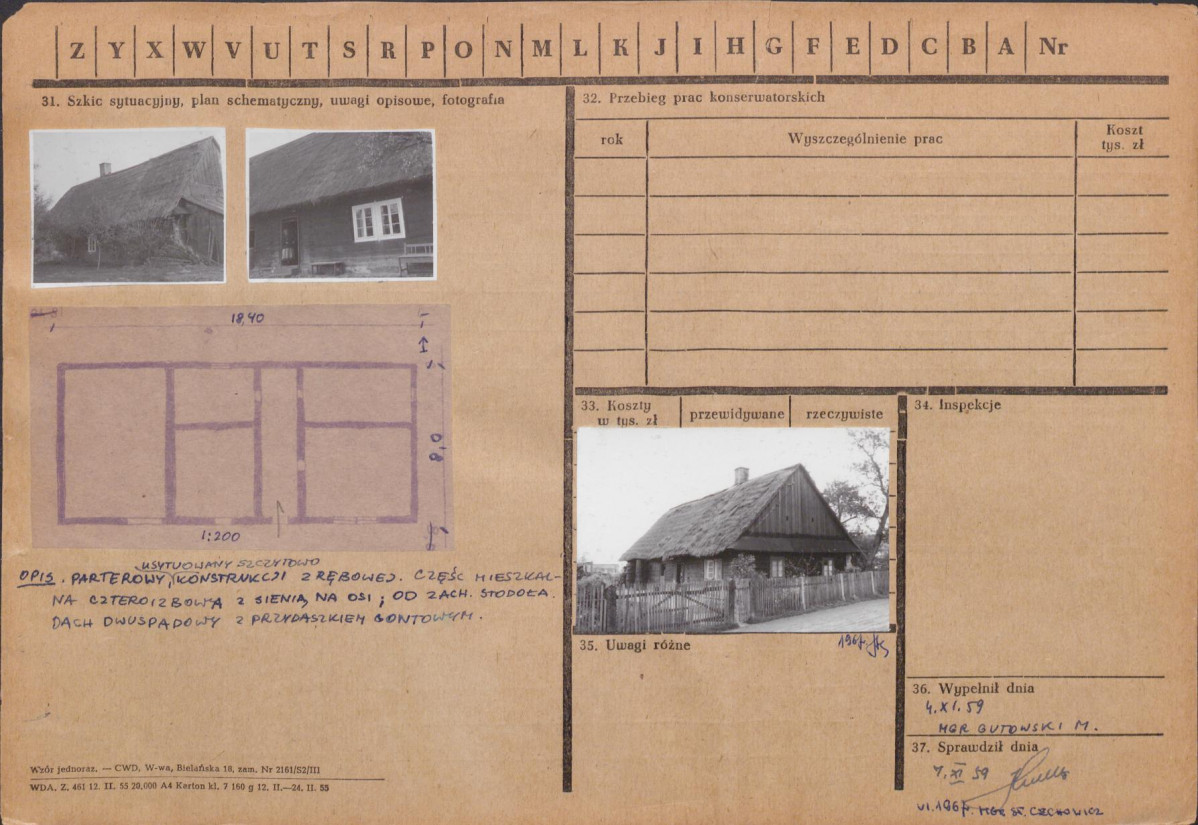 Z Y X W V U T S R P O N M L K J I H G F E D C B A Nr
31. Szkic sytuacyjny, plan schematyczny, uwagi opisowe, fotografia
18,40
8,0
1:200
USYTUOWANY SZCZYTOWO
OPIS. PARTEROWY, KONSTRUKCJI ZRĘBOWEJ. CZĘŚĆ MIESZKAL-
NA CZTEROIZBOWA Z SIENIĄ NA OSI; OD ZACH. STODOŁA.
DACH DWUSPADOWY Z PRZYDASZKIEM GONTOWYM.
Wzór jednoraz. — CWD, W-wa, Bielańska 18, zam. Nr 2161/S2/III
WDA. Z. 461 12. II. 55 20.000 A4 Karton kl. 7 160 g 12. II.—24. II. 55
32. Przebieg prac konserwatorskich
rok
Wyszczególnienie prac
Koszt
tys. zł
33. Koszty
w tys. zł
przewidywane
rzeczywiste
34. Inspekcje
1967.
35. Uwagi różne
36. Wypełnił dnia
4.XI.59
MGR GUTOWSKI M.
37. Sprawdził dnia
7.XI 59
VI.1967. MGR ST. CZECHOWICZ